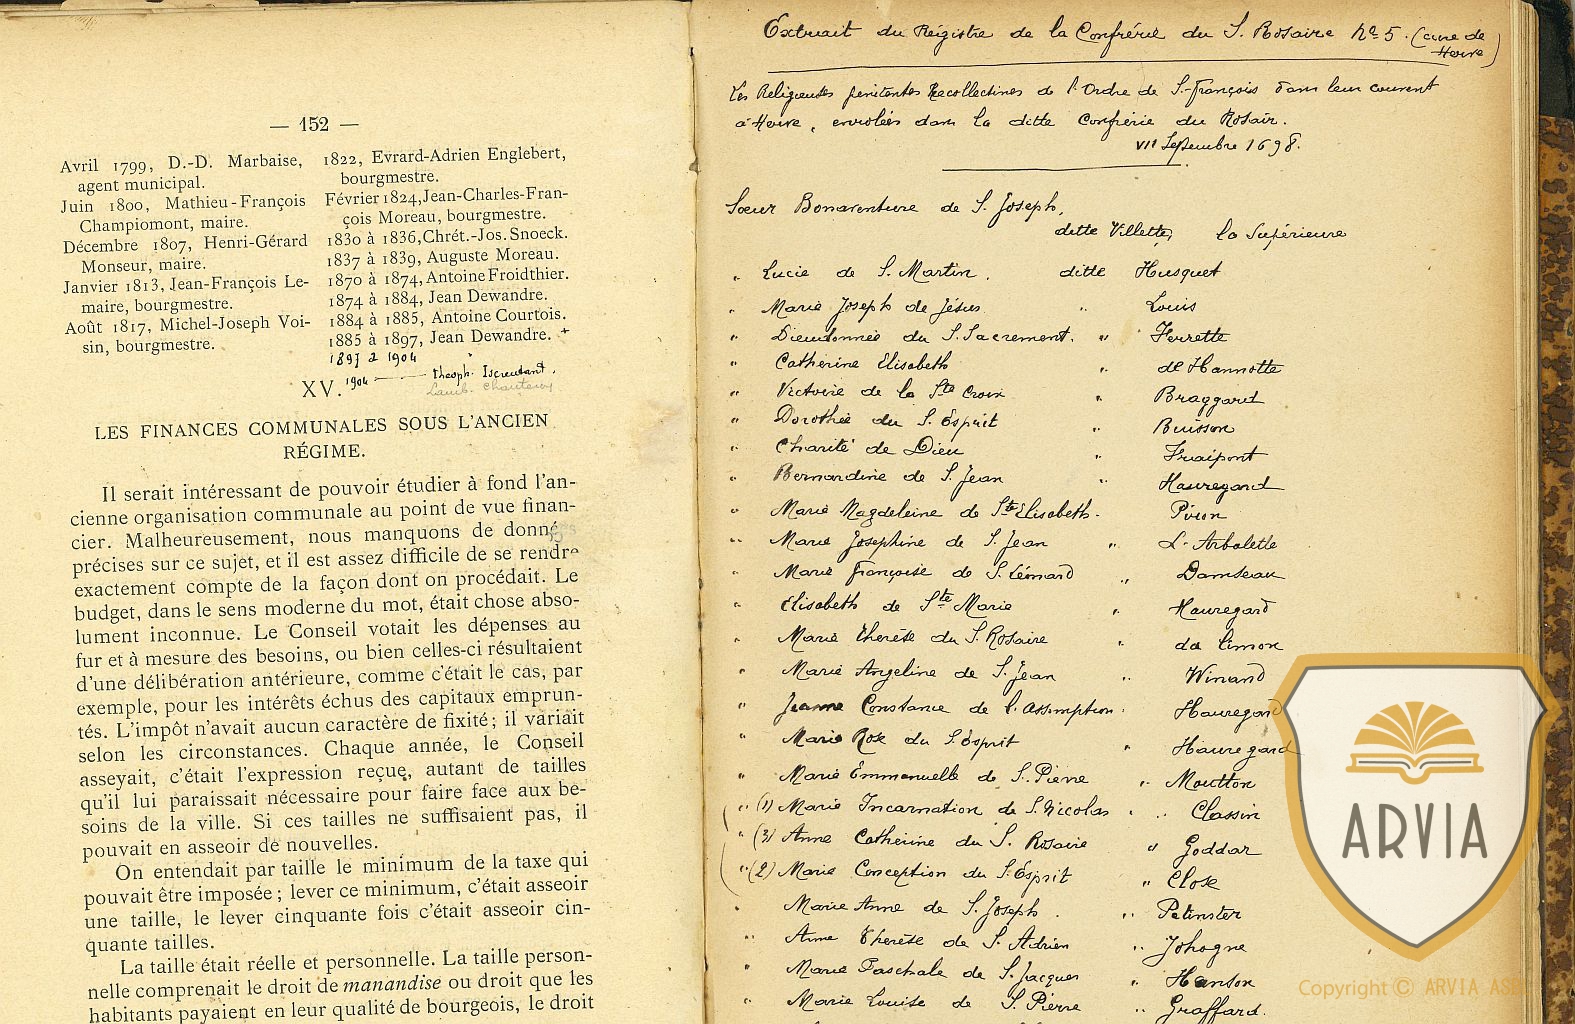 — 152 —
Avril 1799, D.-D. Marbaise,
agent municipal.
Juin 1800, Mathieu-François
Championmont, maire.
Décembre 1807, Henri-Gérard
Monseur, maire.
Janvier 1813, Jean-François Le-
maire, bourgmestre.
Août 1817, Michel-Joseph Voi-
sin, bourgmestre.
1822, Evrard-Adrien Englebert,
bourgmestre.
Février 1824, Jean-Charles-Fran-
çois Moreau, bourgmestre.
1830 à 1836, Chrét.-Jos. Snoeck.
1837 à 1839, Auguste Moreau.
1870 à 1874, Antoine Froidthier.
1874 à 1884, Jean Dewandre.
1884 à 1885, Antoine Courtois.
1885 à 1897, Jean Dewandre. +
1897 à 1904
1904 — Théoph. Iserentant.
XV.
LES FINANCES COMMUNALES SOUS L'ANCIEN
RÉGIME.
Il serait intéressant de pouvoir étudier à fond l'an-
cienne organisation communale au point de vue finan-
cier. Malheureusement, nous manquons de données
précises sur ce sujet, et il est assez difficile de se rendre
exactement compte de la façon dont on procédait. Le
budget, dans le sens moderne du mot, était chose abso-
lument inconnue. Le Conseil votait les dépenses au
fur et à mesure des besoins, ou bien celles-ci résultaient
d'une délibération antérieure, comme c'était le cas, par
exemple, pour les intérêts échus des capitaux emprun-
tés. L'impôt n'avait aucun caractère de fixité; il variait
selon les circonstances. Chaque année, le Conseil
asseyait, c'était l'expression reçue, autant de tailles
qu'il lui paraissait nécessaire pour faire face aux be-
soins de la ville. Si ces tailles ne suffisaient pas, il
pouvait en asseoir de nouvelles.
On entendait par taille le minimum de la taxe qui
pouvait être imposée; lever ce minimum, c'était asseoir
une taille, le lever cinquante fois c'était asseoir cin-
quante tailles.
La taille était réelle et personnelle. La taille person-
nelle comprenait le droit de manandise ou droit que les
habitants payaient en leur qualité de bourgeois, le droit
Extrait du Régistre de la Confrérie du S. Rosaire N° 5. (cure de
Herve)
Les Religieuses pénitentes Recollectines de l'Ordre de S. François dans leur couvent
à Herve, enrolées dans la ditte Confrérie du Rosair.
VII Septembre 1698.
Sœur Bonaventure de S. Joseph,
ditte Villette, la Supérieure
" Lucie de S. Martin. ditte Husquet
" Marie Joseph de Jésus " Louis
" Dieudonnée du S. Sacrement. " Ferrette
" Catherine Elisabeth " de Hannotte
" Victoire de la Ste Croix " Braggard
" Dorothée du S. Esprit " Buisson
" Charité de Dieu " Fraipont
" Bernardine de S. Jean " Hauregard
" Marie Magdeleine de Ste Elisabeth. Piron
" Marie Josephine de S. Jean " L'Arbalette
" Marie Françoise de S. Léonard " Damseau
" Elisabeth de Ste Marie " Hauregard
" Marie Therèse du S. Rosaire " da Cimon
" Marie Angeline de S. Jean " Winand
" Jeanne Constance de l'Assumption " Hauregard
" Marie Rose du S. Esprit " Hauregard
" Marie Emmanuelle de S. Pierre " Moutton
" (1) Marie Incarnation de S. Nicolas " Classin
" (3) Anne Catherine du S. Rosaire " Goddar
" (2) Marie Conception du S. Esprit " Close
" Marie Anne de S. Joseph " Petinster
" Anne Therèse de S. Adrien " Johogne
" Marie Paschale de S. Jacques " Hanson
" Marie Louise de S. Pierre " Graffard.
ARVIA
Copyright © ARVIA ASBL